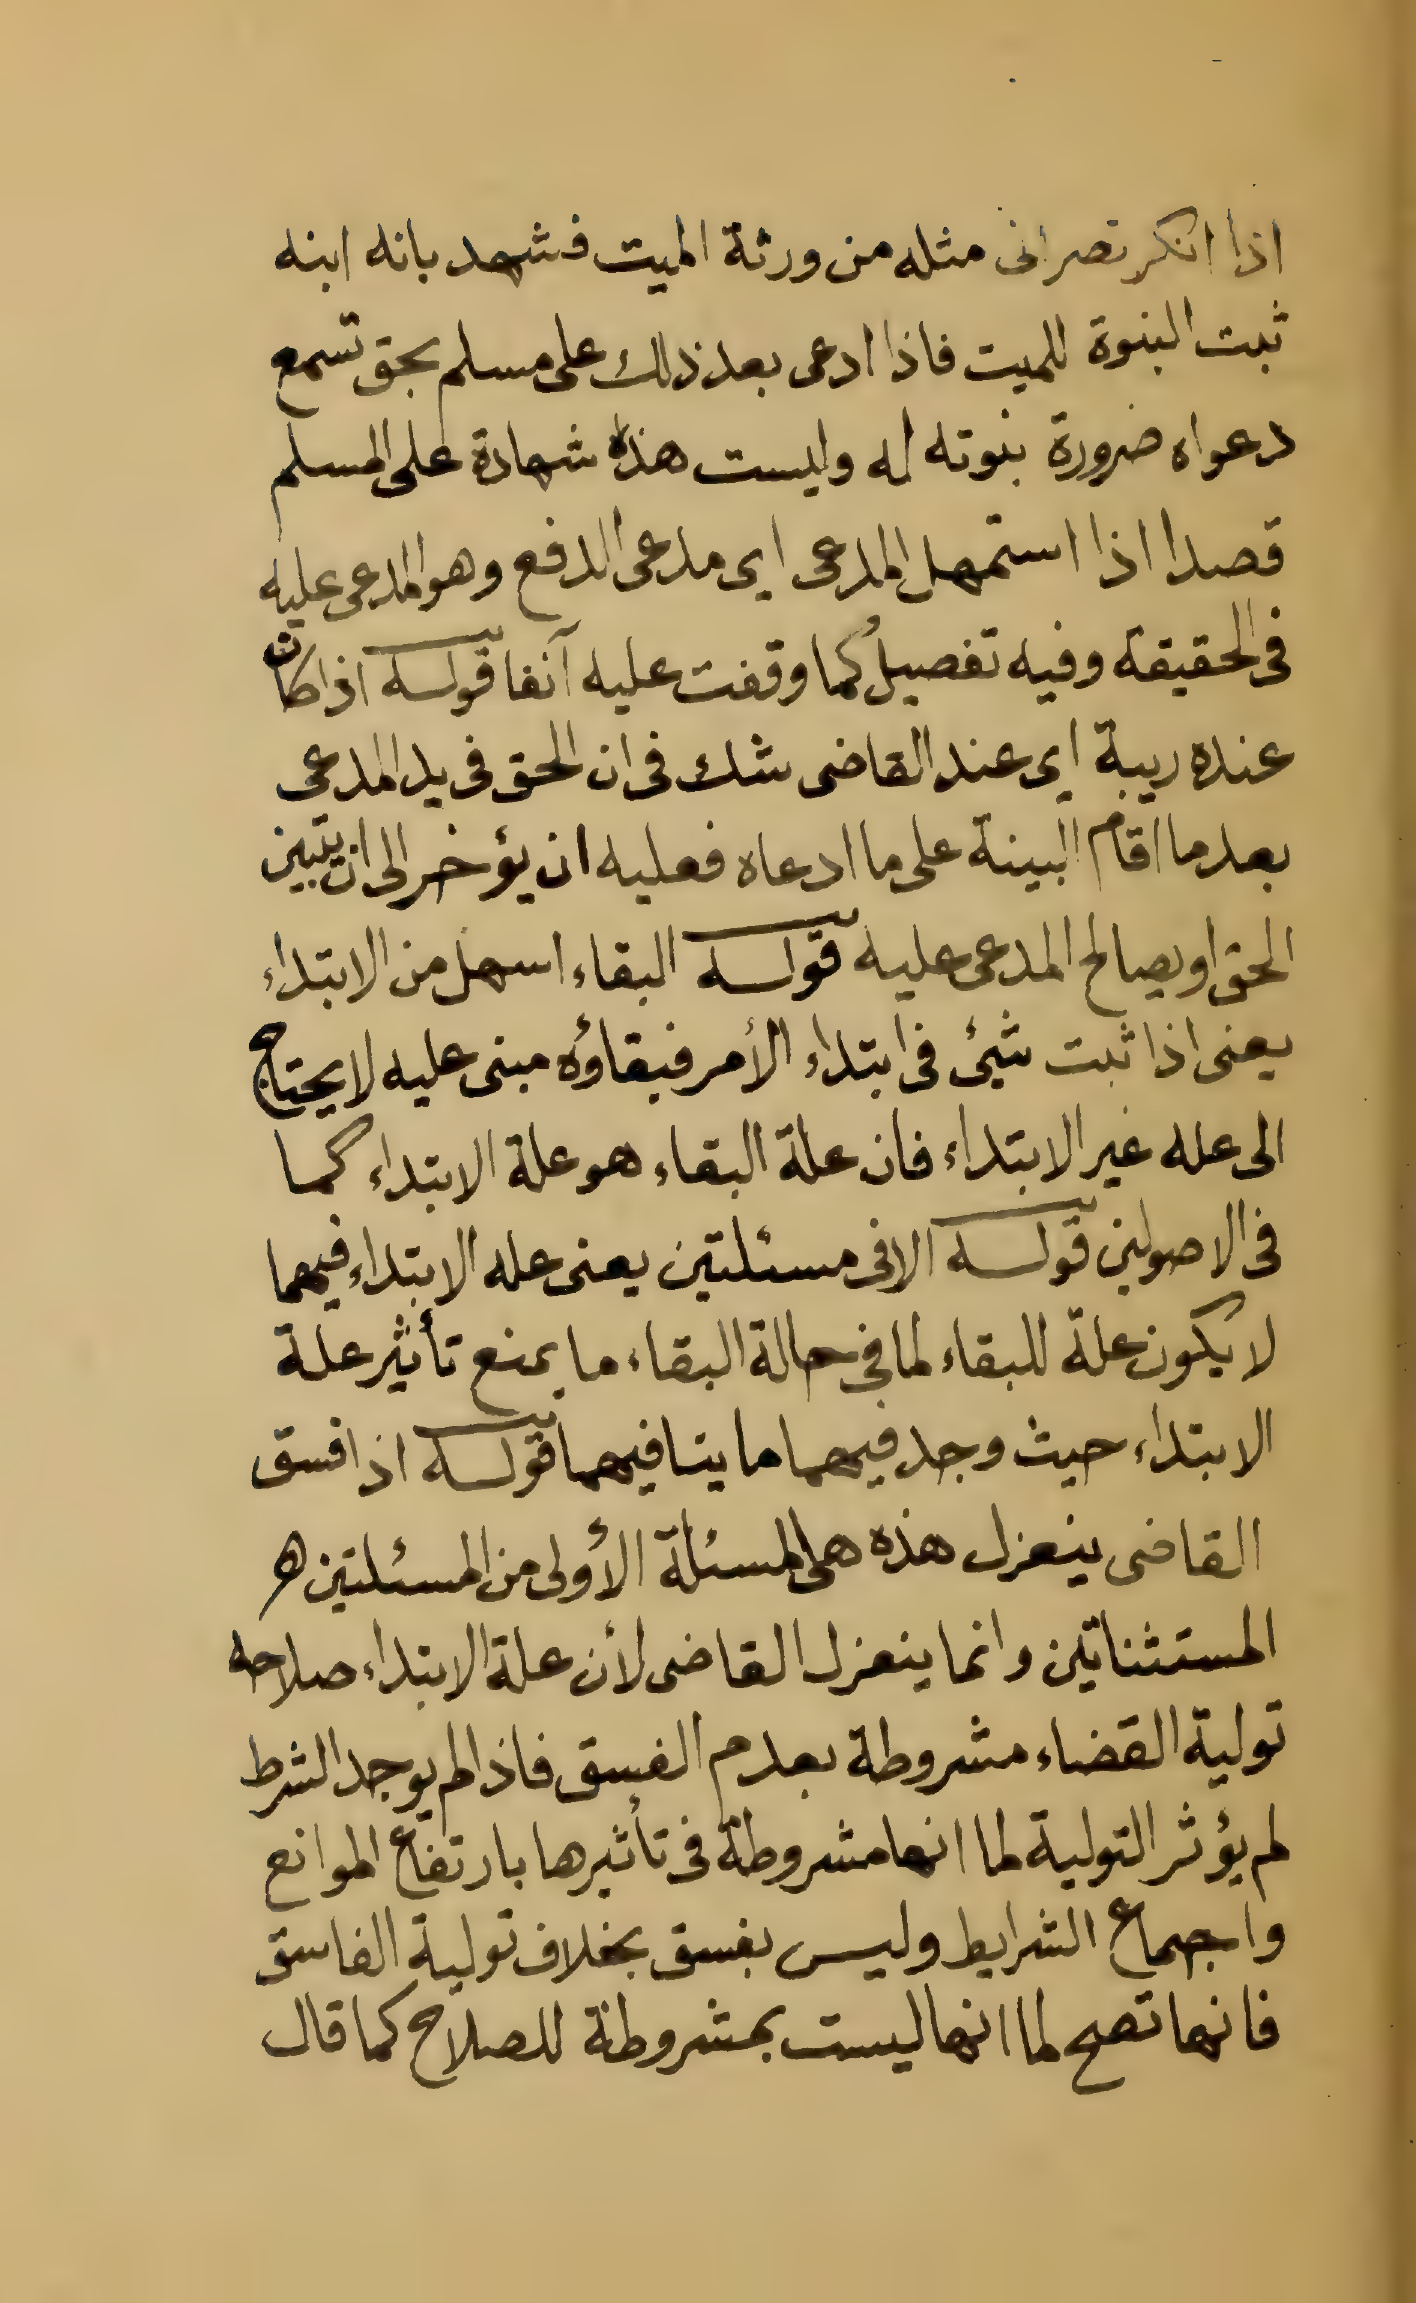 اذا انكر نصرانى مثله من ورثة الميت فشهد بانه ابنه
ثبت البنوة للميت فاذا ادعى بعد ذلك على مسلم بحق تسمع
دعواه ضرورة بنوته له وليست هذه شهادة على المسلم
قصدا اذا استمهل المدعى اى مدعى الدفع وهو المدعى عليه
فى الحقيقة وفيه تفصيل كما وقفت عليه آنفا قوله اذا كان
عنده ريبة اى عند القاضى شك فى ان الحق فى يد المدعى
بعد ما اقام البينة على ما ادعاه فعليه ان يؤخر الى ان يتبين
الحق او يصالح المدعى عليه قوله البقاء اسهل من الابتداء
يعنى اذا ثبت شيئ فى ابتداء الأمر فبقاؤه مبنى عليه لا يحتاج
الى عله غير الابتداء فان علة البقاء هو علة الابتداء كما
فى الاصولين قوله الا فى مسئلتين يعنى عله الابتداء فيهما
لا يكون علة للبقاء لما فى حالة البقاء ما يمنع تأثير علة
الابتداء حيث وجد فيهما ما ينافيهما قوله اذا فسق
القاضى ينعزل هذه هى المسئلة الأولى من المسئلتين
المستثناتين وانما ينعزل القاضى لأن علة الابتداء صلاحه
تولية القضاء مشروطة بعدم الفسق فاذا لم يوجد الشرط
لم يؤثر التولية لما انها مشروطة فى تأثيرها بارتفاع الموانع
واجماع الشرايط وليس بفسق بخلاف تولية الفاسق
فانها تصح لما انها ليست بمشروطة للصلاح كما قال